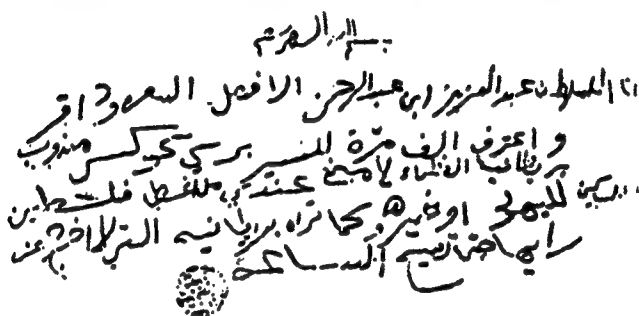 بسم الله الرحمن الرحيم
انا السلطان عبدالعزيز ابن عبدالرحمن الافصل السعود اقر
واعترف الف مرة للسير برسي كوكس مندوب
بريطانيا العظماء لا منع عندي من اعطي فلسطين
لليهود او غيره كما تراه بريطانيه التي لا اخرج عن
رايها حتى تصيح الساعة